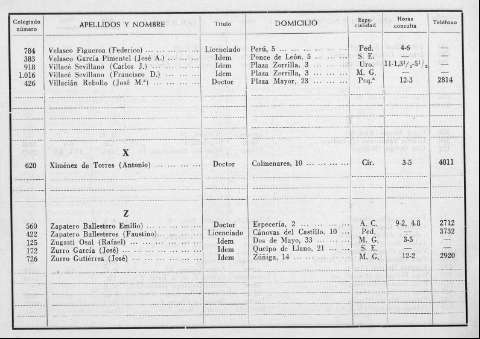 Colegiado número APELLIDOS Y NOMBRE Título DOMICILIO Especialidad Horas consulta Teléfono
784 Velasco Figueroa (Federico) Licenciado Perú, 5 Ped. 4-6 —
385 Velasco García Pimentel (José A.) Idem Ponce de León, 5 S. E. — —
918 Villacé Sevillano (Carlos J.) Idem Plaza Zorrilla, 3 Uro. 11-1,3½-5½ —
1.016 Villacé Sevillano (Francisco D.) Idem Plaza Zorrilla, 3 M. G. — —
426 Villacián Rebollo (José M.ª) Doctor Plaza Mayor, 23 Psq.ª 12-3 2814
X
620 Ximénez de Torres (Antonio) Doctor Colmenares, 10 Cir. 3-5 4811
Z
560 Zapatero Ballestero Emilio) Doctor Especería, 2 A. C. 9-2, 4-8 2712
422 Zapatero Ballesteros (Faustino) Licenciado Cánovas del Castillo, 10 Ped. — 3732
125 Zugasti Osal (Rafael) Idem Dos de Mayo, 33 M. G. 3-5 —
172 Zurro García (José) Idem Queipo de Llano, 21 S. E. — —
726 Zurro Gutiérrez (José) Idem Zúñiga, 14 M. G. 12-2 2920